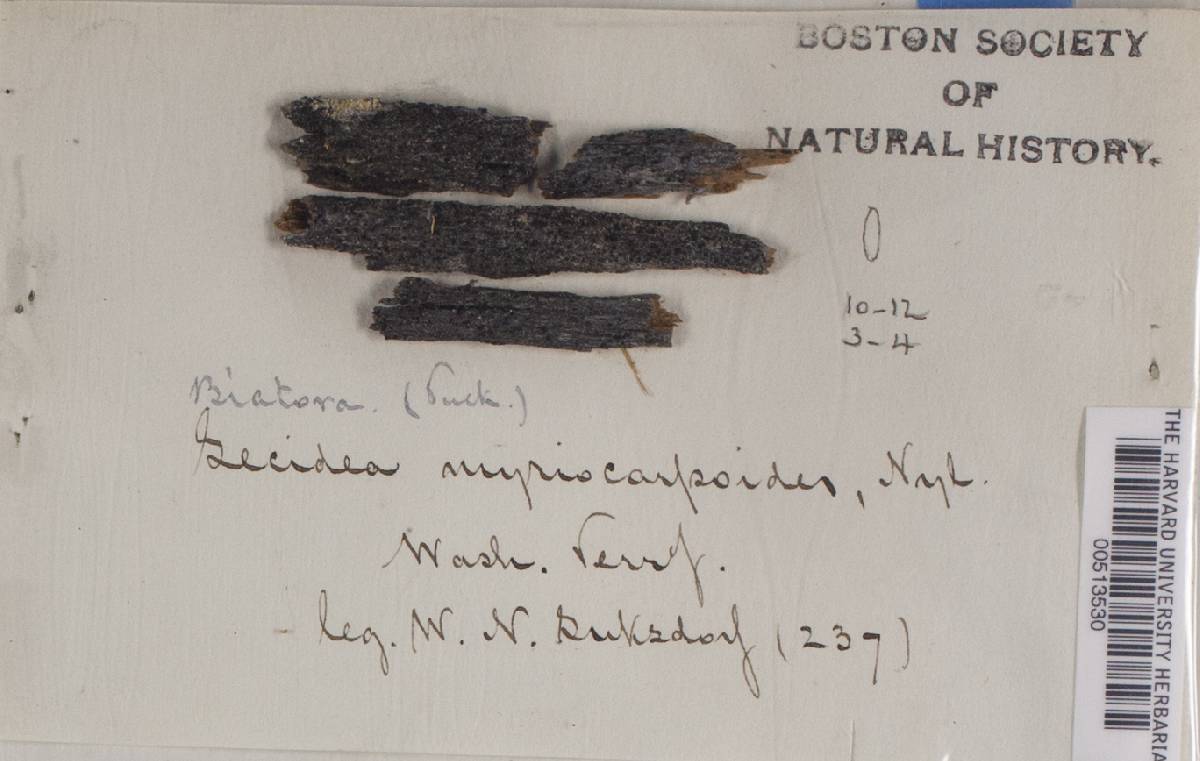 BOSTON SOCIETY
OF
NATURAL HISTORY.
10-12
3-4
Biatora. (Tuck.)
Lecidea myriocarpoides, Nyl.
Wash. Terry.
leg. W. N. Suksdorf (237)
THE HARVARD UNIVERSITY HERBARIA
00513530